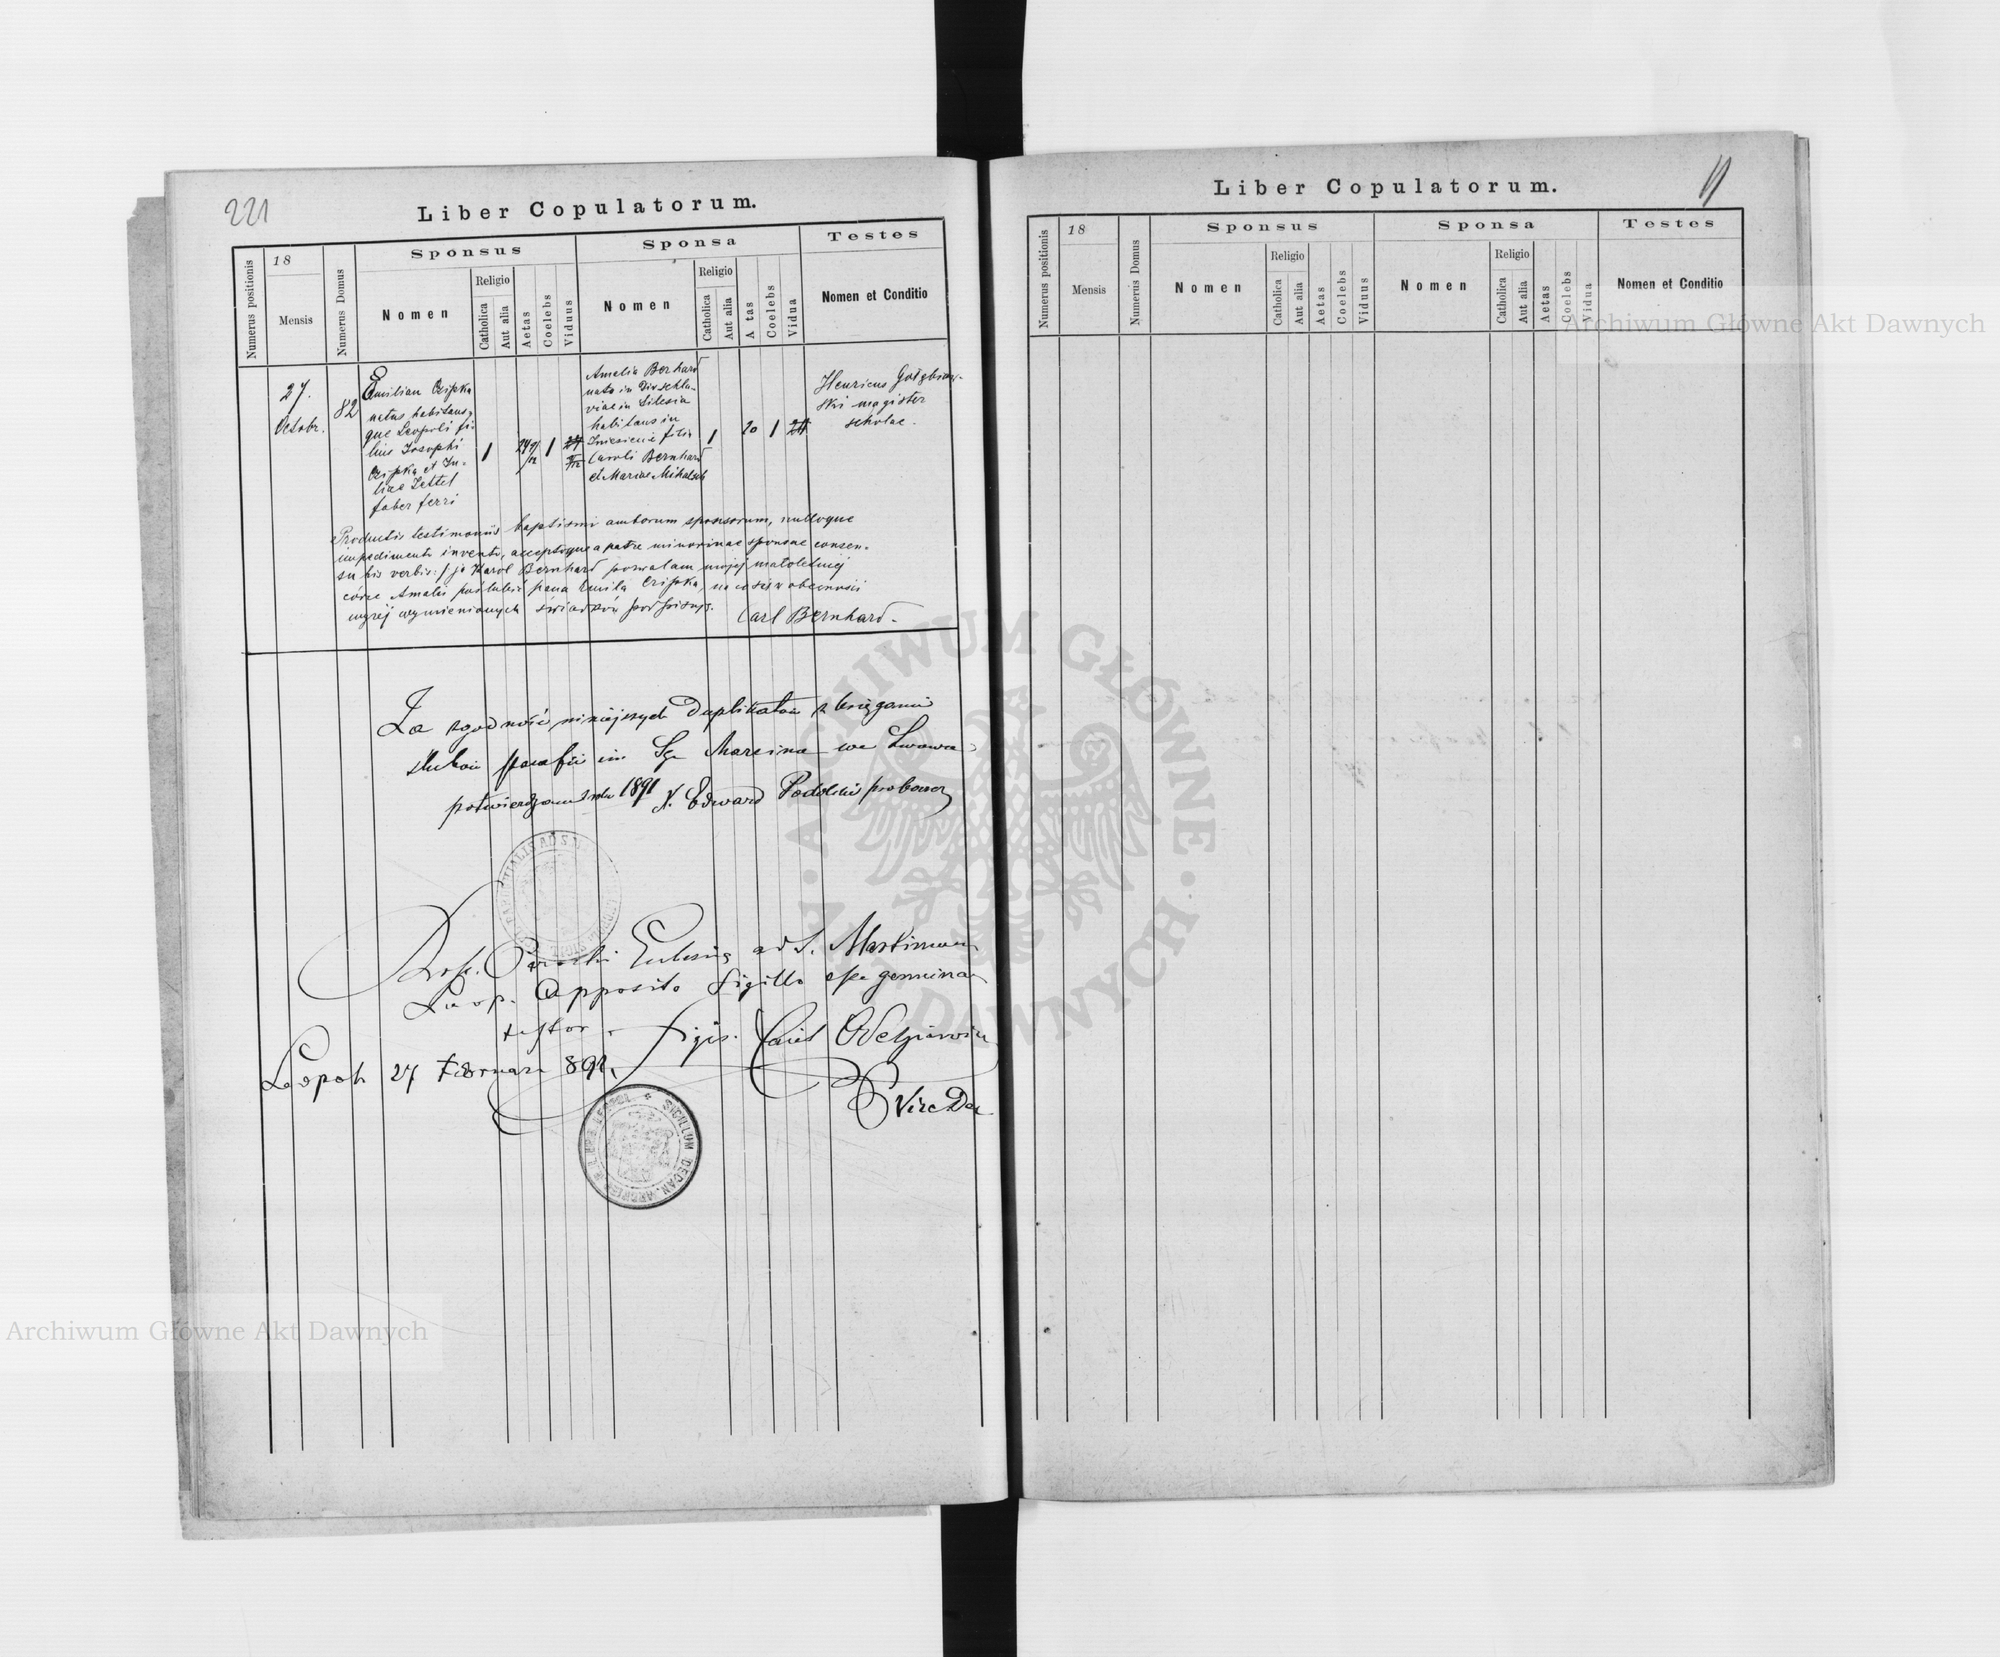 221
Liber Copulatorum.
Numerus positionis
18
Mensis
Numerus Domus
Sponsus
Nomen
Religio
Catholica
Aut alia
Aetas
Coelebs
Viduus
Sponsa
Nomen
Religio
Catholica
Aut alia
A tas
Coelebs
Vidua
Testes
Nomen et Conditio
27.
Octobr.
82
Emilian Czipka
natus habitans-
que Leopoli fi-
lius Josephi
Czipka et Ju-
liae Zettel
faber ferri
1
24
1
Amelia Berhard
nata in
viae in Silesia
habitans in
filia
Caroli Bernhard
et Mariae
1
20
1
Henricus
ski magister
scholae.
Productis testimoniis baptismi amborum sponsorum, nulloque
impedimento invento, acceptoque a patre minorinae sponsae consen-
su his verbis: ja Karol Bernhard pozwalam mojej małoletniej
córce Amalii poślubić pana Emila Czipka, na co się w obecności
wyżej wymienionych świadków podpisuję.
Carl Bernhard.
Za zgodność niniejszych duplikatów z księgami
ślubów parafii im Sgo Marcina we Lwowie
potwierdzam 1891 X. Edward Podolski proboszcz
Parochi Ecclesiae ad S. Martinum
Leop. apposito sigillo esse genuinam
testor
Leopoli 27 Februarii 891.
Vice Dec
SIGILLUM DECAN.
Liber Copulatorum.
Numerus positionis
18
Mensis
Numerus Domus
Sponsus
Nomen
Religio
Catholica
Aut alia
Aetas
Coelebs
Viduus
Sponsa
Nomen
Religio
Catholica
Aut alia
Aetas
Coelebs
Vidua
Testes
Nomen et Conditio
Archiwum Główne Akt Dawnych
ARCHIWUM GŁÓWNE AKT DAWNYCH
Archiwum Główne Akt Dawnych